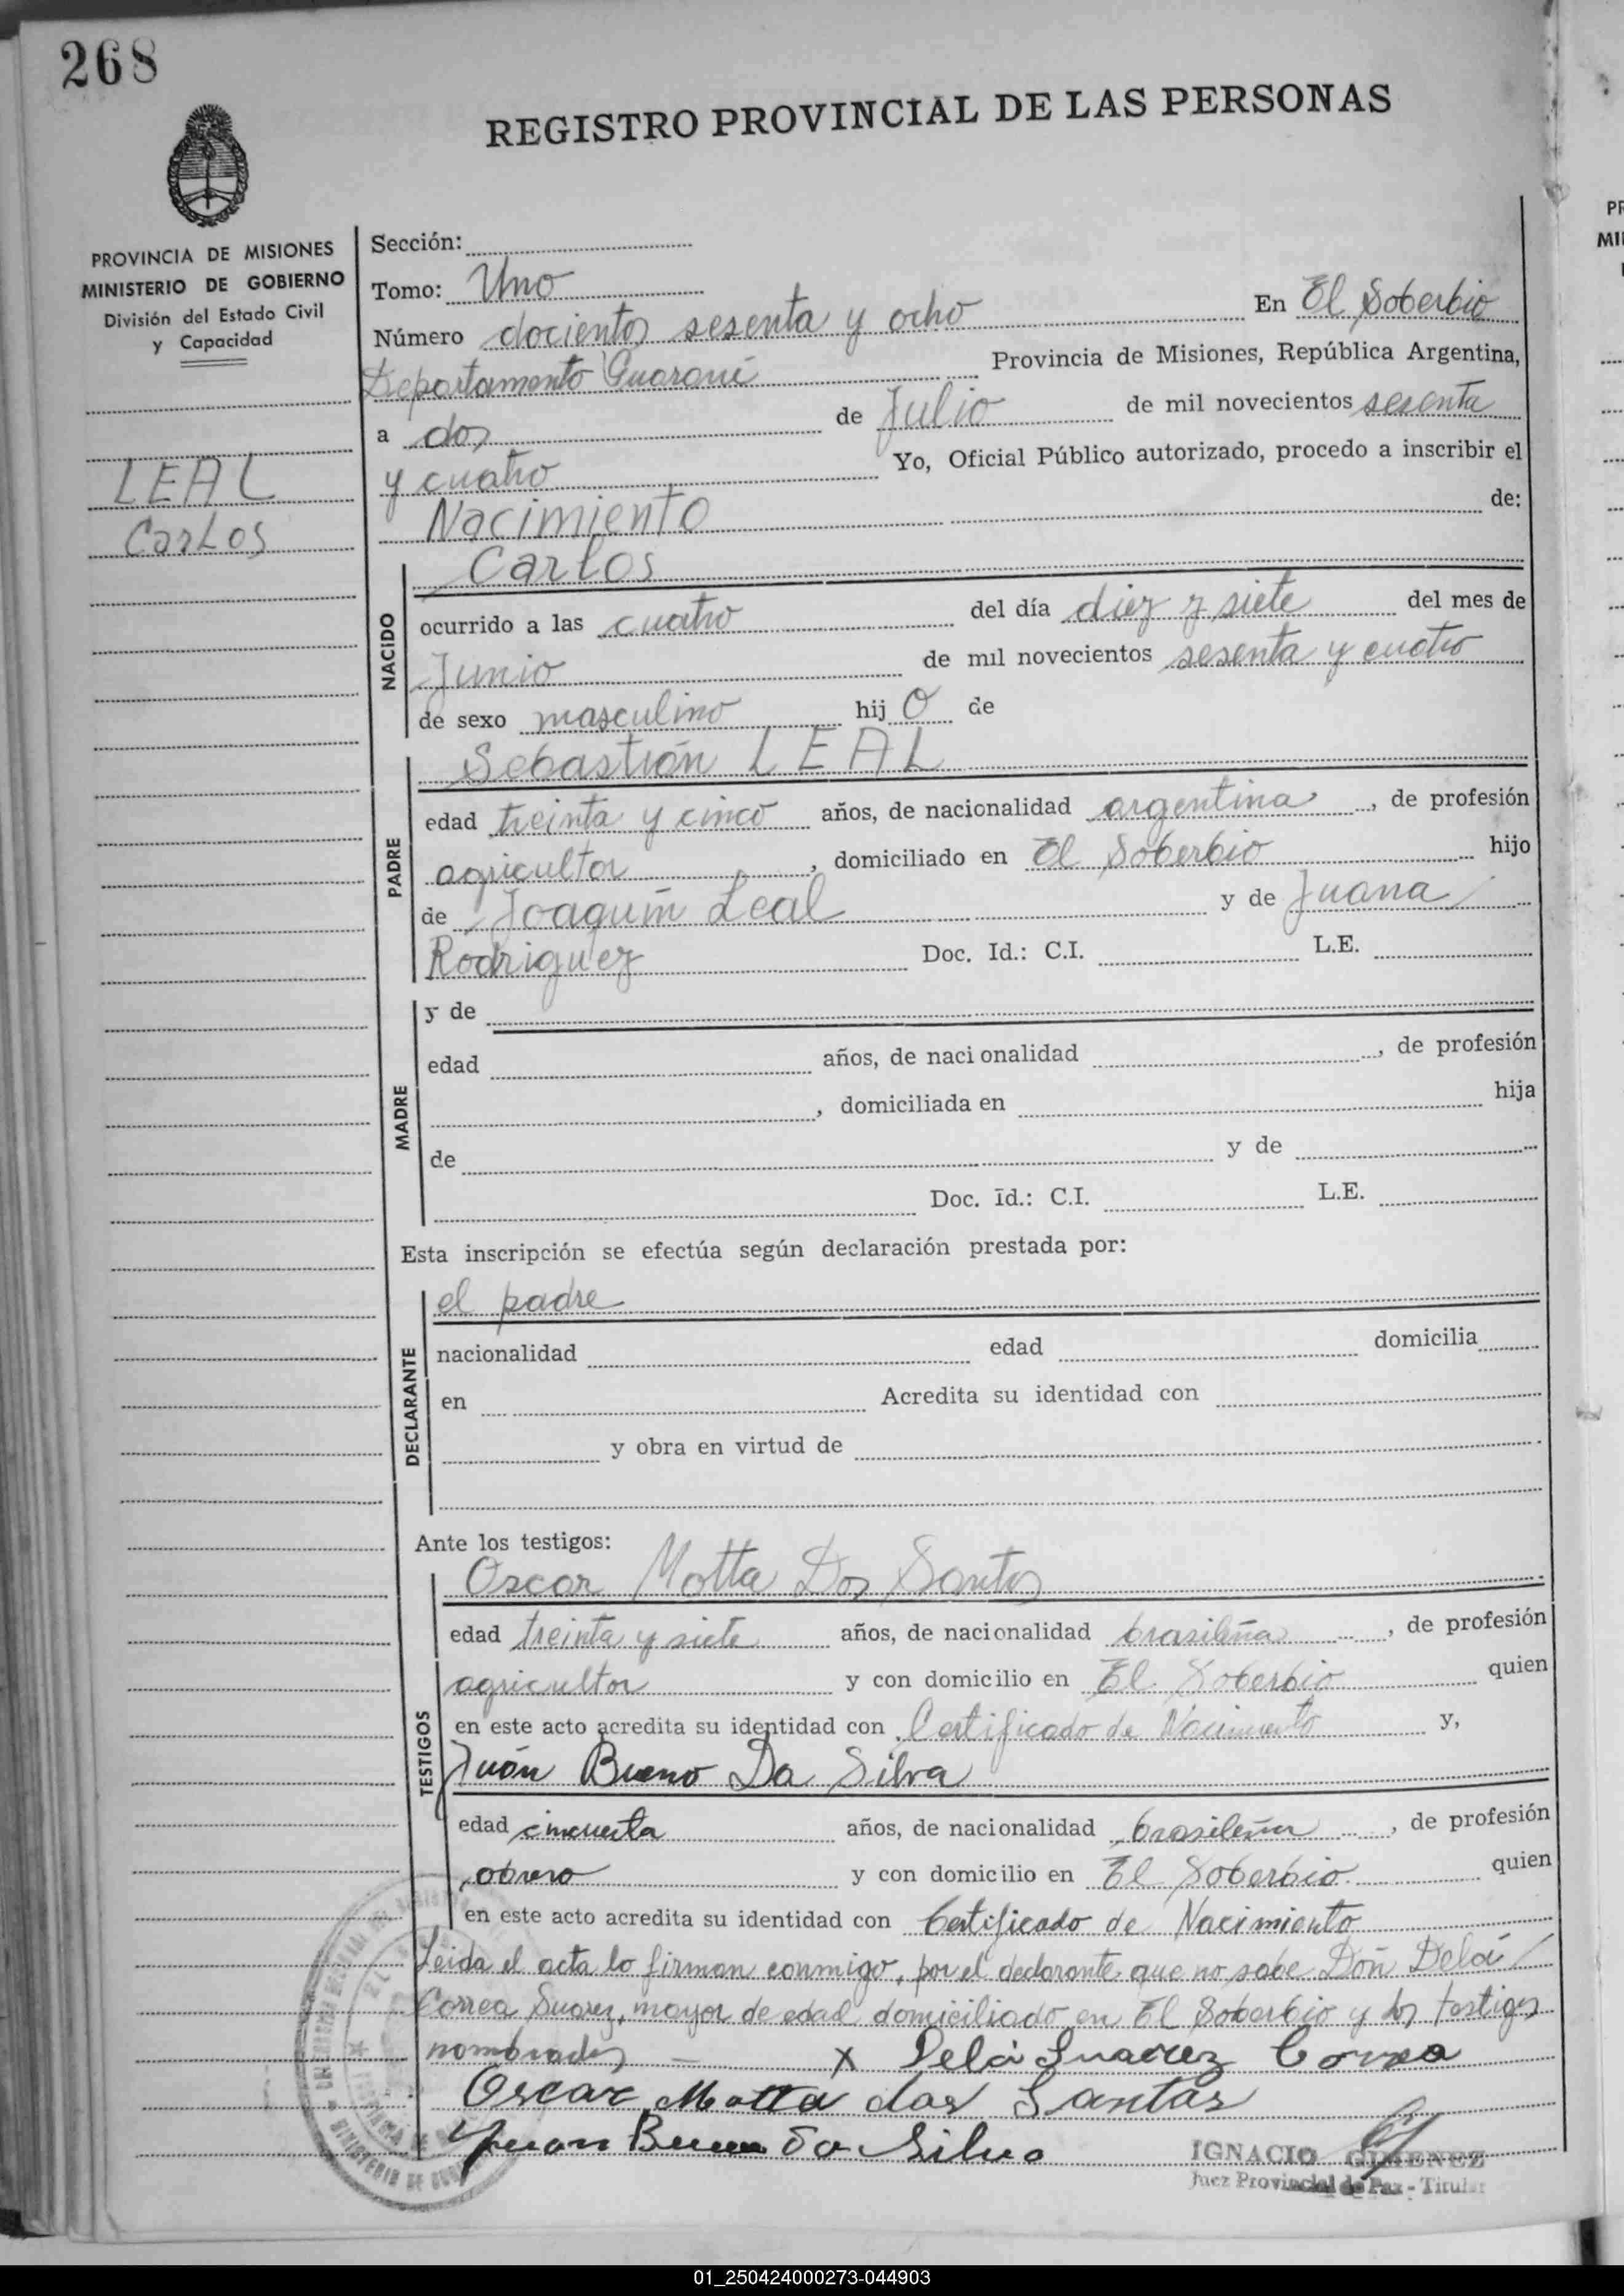 268
REGISTRO PROVINCIAL DE LAS PERSONAS
PROVINCIA DE MISIONES
MINISTERIO DE GOBIERNO
División del Estado Civil
y Capacidad
LEAL
Carlos
Sección:
Tomo: Uno
Número docientos sesenta y ocho En El Soberbio
Departamento Guaraní Provincia de Misiones, República Argentina,
a dos de Julio de mil novecientos sesenta
y cuatro Yo, Oficial Público autorizado, procedo a inscribir el
Nacimiento de:
NACIDO
Carlos
ocurrido a las cuatro del día diez y siete del mes de
Junio de mil novecientos sesenta y cuatro
de sexo masculino hij o de
PADRE
Sebastián LEAL
edad treinta y cinco años, de nacionalidad argentina, de profesión
agricultor, domiciliado en El Soberbio hijo
de Joaquín Leal y de Juana
Rodriguez Doc. Id.: C.I. L.E.
MADRE
y de
edad años, de nacionalidad , de profesión
, domiciliada en hija
de y de
Doc. Id.: C.I. L.E.
Esta inscripción se efectúa según declaración prestada por:
DECLARANTE
el padre
nacionalidad edad domicilia
en Acredita su identidad con
y obra en virtud de
Ante los testigos:
TESTIGOS
Oscar Motta Dos Santos
edad treinta y siete años, de nacionalidad brasileña, de profesión
agricultor y con domicilio en El Soberbio quien
en este acto acredita su identidad con Certificado de Nacimiento y,
Juán Bueno Da Silva
edad cincuenta años, de nacionalidad brasileña, de profesión
obrero y con domicilio en El Soberbio quien
en este acto acredita su identidad con Certificado de Nacimiento
Leida el acta lo firman conmigo, por el declarante que no sabe Don Delci
Correa Suarez, mayor de edad domiciliado en El Soberbio y los testigos
nombrados — x Delci Suarez Correa
Oscar Motta dos Santos
Juan Bueno Da Silva
IGNACIO GIMENEZ
Juez Provincial de Paz - Titular
01_250424000273-044903